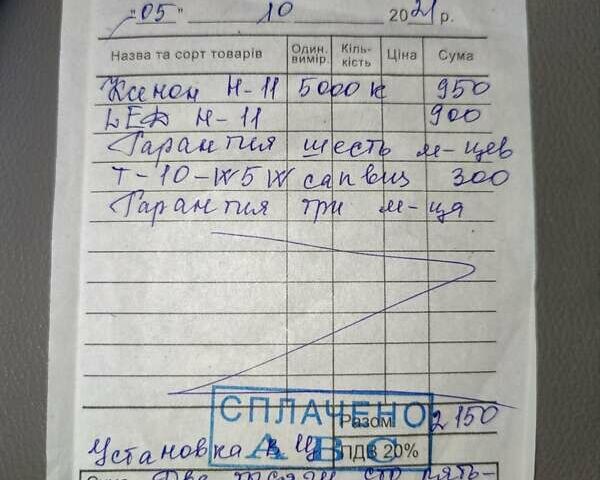 "05" 10 2021 р.
Назва та сорт товарів Один. вимір. Кіль- кість Ціна Сума
Ксенон H-11 5000 к 950
LED H-11 900
Гарантия шесть м-цев
T-10-W5W 300
Гарантия три м-ца
СПЛАЧЕНО
Разом 2150
Установка в
АВС
ПДВ 20%
Два сто пять-